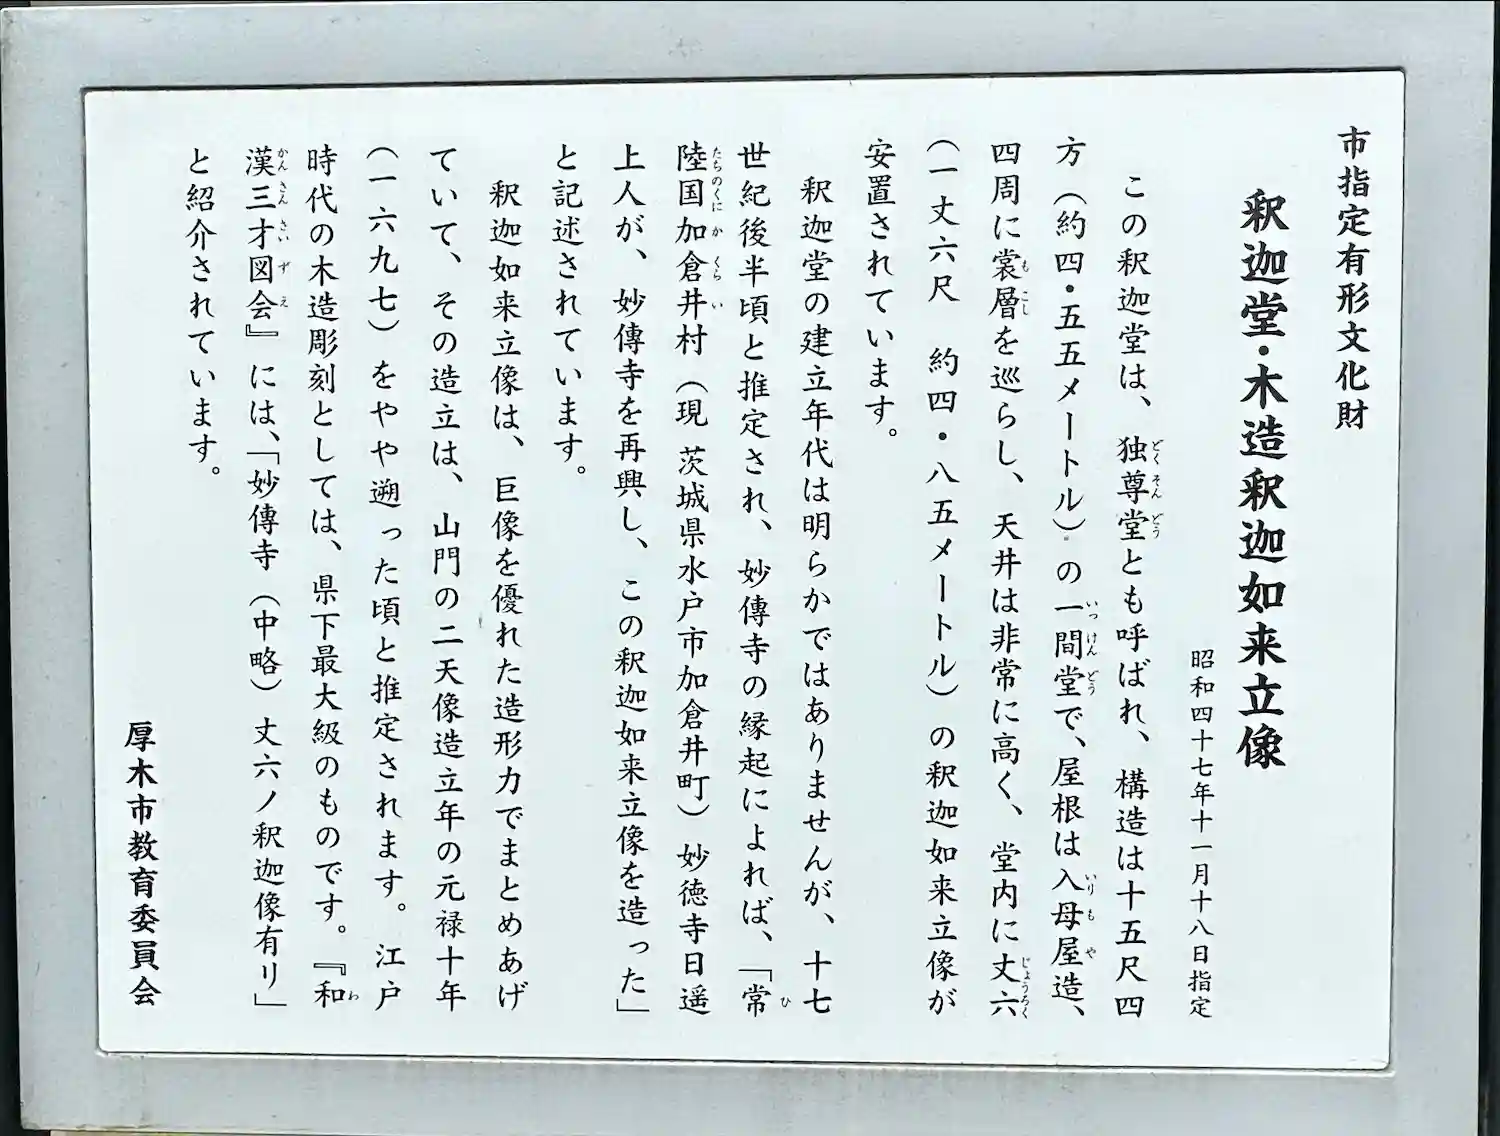 市指定有形文化財
釈迦堂・木造釈迦如来立像
昭和四十七年十一月十八日指定
この釈迦堂は、独尊堂とも呼ばれ、構造は十五尺四
方（約四・五五メートル）の一間堂で、屋根は入母屋造、
四周に裳層を巡らし、天井は非常に高く、堂内に丈六
（一丈六尺　約四・八五メートル）の釈迦如来立像が
安置されています。
釈迦堂の建立年代は明らかではありませんが、十七
世紀後半頃と推定され、妙傳寺の縁起によれば、「常
陸国加倉井村（現 茨城県水戸市加倉井町）妙徳寺日遥
上人が、妙傳寺を再興し、この釈迦如来立像を造った」
と記述されています。
釈迦如来立像は、巨像を優れた造形力でまとめあげ
ていて、その造立は、山門の二天像造立年の元禄十年
（一六九七）をやや遡った頃と推定されます。江戸
時代の木造彫刻としては、県下最大級のものです。『和
漢三才図会』には、「妙傳寺（中略）丈六ノ釈迦像有リ」
と紹介されています。
厚木市教育委員会